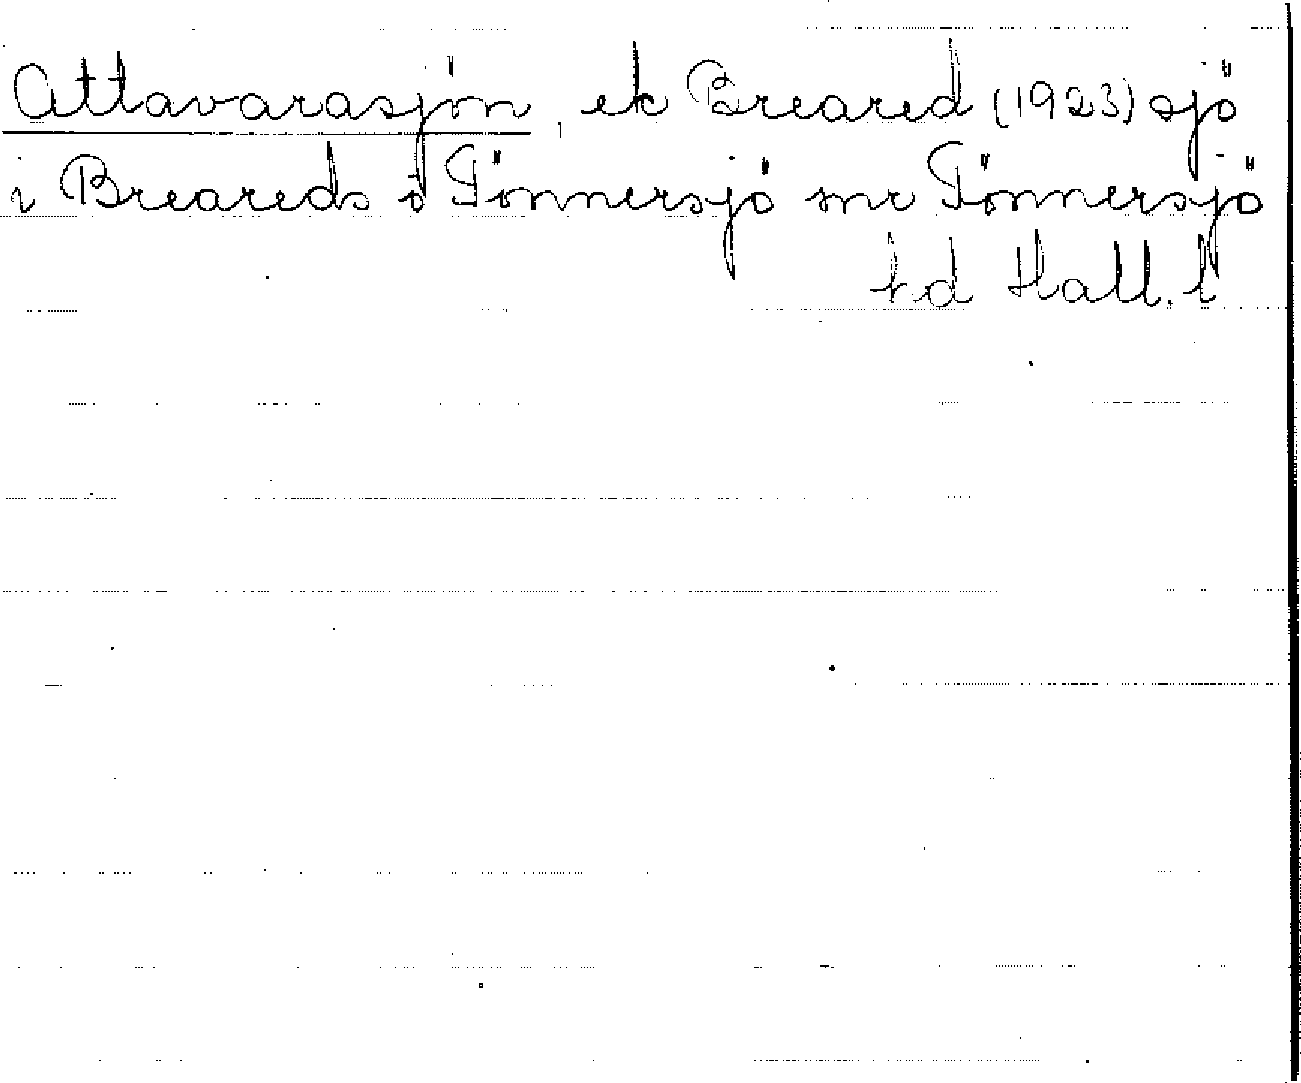 Attavarasjön, ek Breared (1923) sjö
i Breareds o Tönnersjö snr Tönnersjö
hd Hall. l